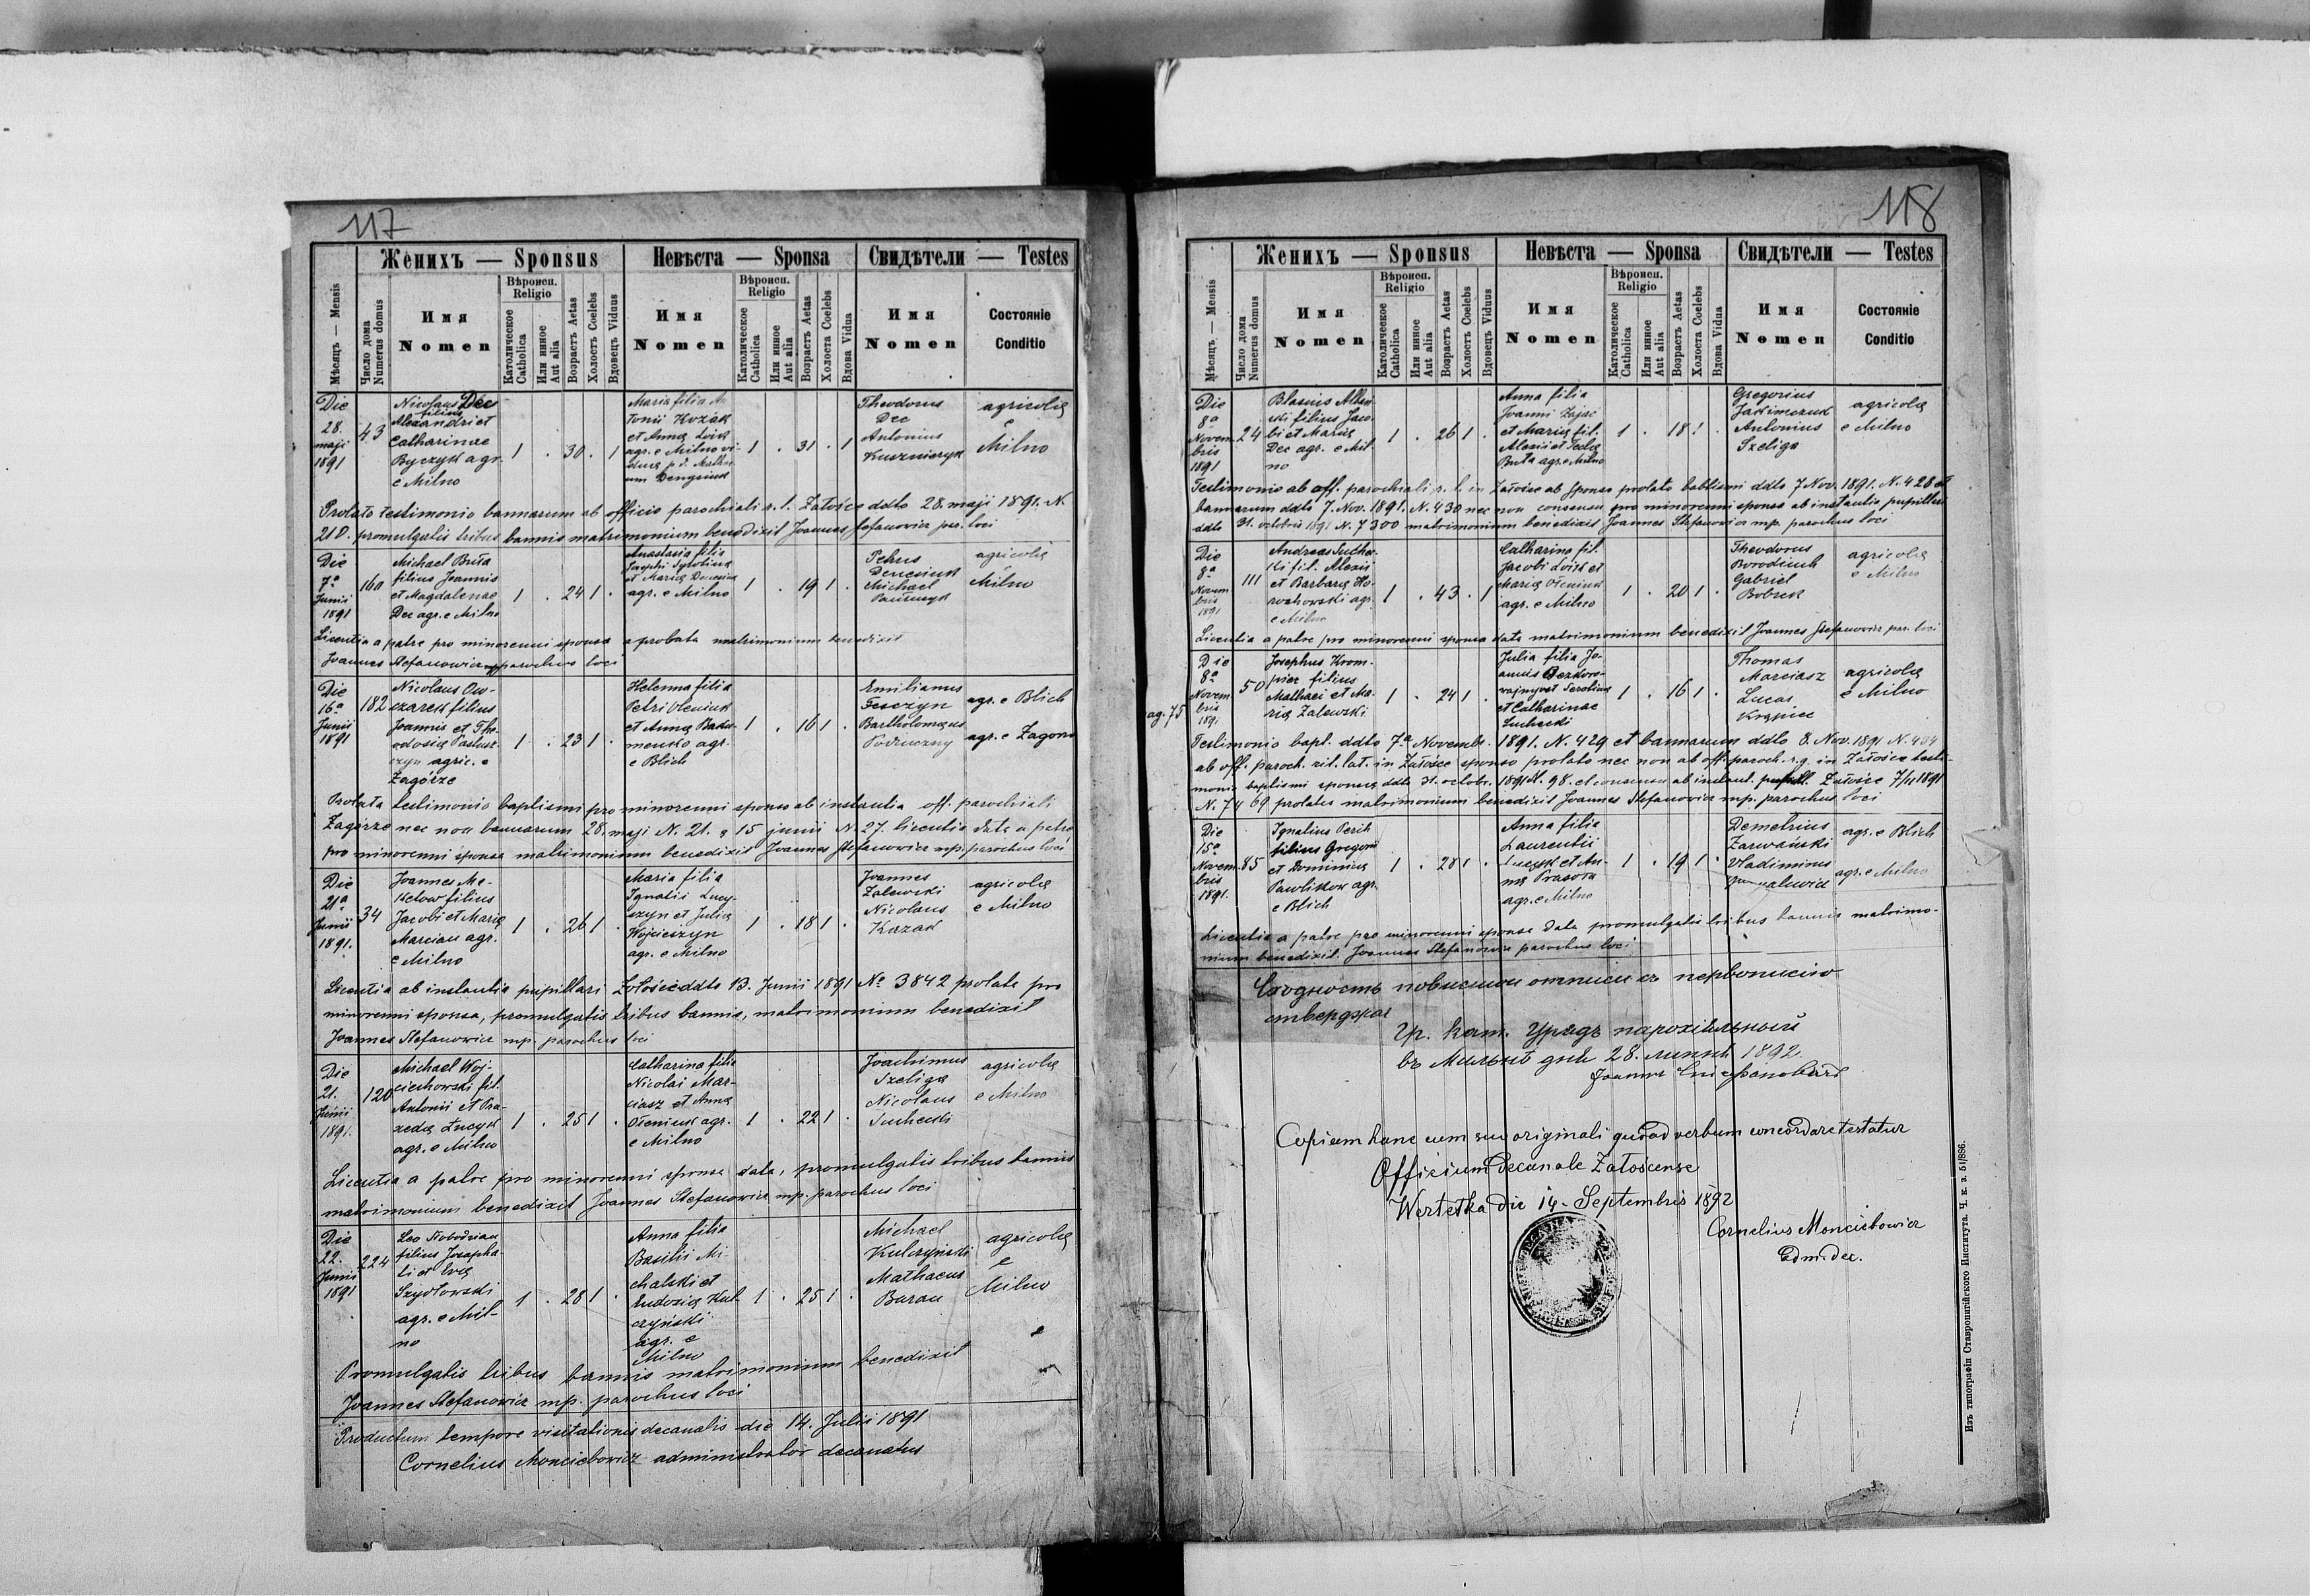 117
Женихъ — Sponsus
Невѣста — Sponsa
Свидѣтели — Testes
Мѣсяцъ — Mensis
Число дома
Numerus domus
Имя
Nomen
Вѣроисп.
Religio
Католическое
Catholica
Или инное
Aut alia
Возрастъ Aetas
Холостъ Coelebs
Вдовецъ Viduus
Имя
Nomen
Вѣроисп.
Religio
Католическое
Catholica
Или инное
Aut alia
Возрастъ Aetas
Холоста Coelebs
Вдова Vidua
Имя
Nomen
Состояніе
Conditio
Die
28.
maji
1891
43
Nicolaus Dec
filius
Alexandri et
Catharinae
Byczyk agr.
e Milno
1 . 30 . 1
Maria filia An
tonii Kozak
et Annę Łoik
agr. e Milno vi-
dua p. d.
um Denysiuk
1 . 31 . 1
Theodorus
Dec
Antonius
Kusznieryk
agricolę
e
Milno
Prolato testimonio bannarum ab officio parochiali r. l. Załośce ddto 28. maji 1891. N.
210. promulgatis tribus bannis matrimonium benedixit Joannes Stefanowicz par. loci
Die
7ª
Junii
1891
160
Michael Buta
filius Joannis
et Magdalenae
Dec agr. e Milno
1 . 24 1 .
Anastasia filia
Josephi
et Marię Denesiuk
agr. e Milno
1 . 19 1 .
Petrus
Denesiuk
Michael
agricolę
e
Milno
Licentia a patre pro minorenni sponsa aprobata matrimonium benedixit
Joannes Stefanowicz mp parochus loci
Die
16ª
Junii
1891
182
Nicolaus Ow-
czarek filius
Joannis et The
odosię
agric. e
Zagórze
1 . 23 1 .
Helenna filia
Petri Oleniuk
et Annę
agr.
e Blich
1 . 16 1 .
Emilianus
Feszczyn
Bartholomaeus
agr. e Blich
agr. e Zagorze
Prolata testimonio baptismi pro minorenni sponso ab instantia off. parochiali
Zagórze nec non bannarum 28. maji N. 21. & 15 junii N. 27. licentia data a patre
pro minorenni sponsa matrimonium benedixit Joannes Stefanowicz mp. parochus loci
Die
21ª
Junii
1891.
34
Joannes Me-
ketow filius
Jacobi et Marię
Marciau agr.
e Milno
1 . 26 1 .
Maria filia
Ignatii Łucy-
szyn et Julię
Wojciszyn
agr. e Milno
1 . 18 1 .
Joannes
Zalewski
Nicolaus
Kazak
agricolę
e Milno
Licentia ab instantia pupillari Załośce ddto 13. Junii 1891 № 3842 prolate pro
minorenni sponsa, promulgatis tribus bannis, matrimonium benedixit
Joannes Stefanowicz mp. parochus loci
Die
21.
Junii
1891.
120
Michael Woj-
ciechowski fil.
Antonii et Pra-
xedę Łucyk
agr. e Milno
1 . 25 1 .
Catharina filia
Nicolai Mar-
ciasz et Annę
Oleniuk agr.
e Milno
1 . 22 1 .
Joachimus
Szeliga
Nicolaus
Suchecki
agricolę
e Milno
Licentia a patre pro minorenni sponsa data, promulgatis tribus bannis
matrimonium benedixit Joannes Stefanowicz mp. parochus loci
Die
22.
Junii
1891
224
Leo Słobodzian
filius Josapha-
ti et Evę
Szydłowski
agr. e Mil-
no
1 . 28 1 .
Anna filia
Basilii Mi-
chalski et
Eudoxię Kul-
czyński
agr. e
Milno
1 . 25 1 .
Michael
Kulczyński
Mathaeus
Baran
agricolę
e
Milno
Promulgatis tribus bannis matrimonium benedixit
Joannes Stefanowicz mp. parochus loci
Productum tempore visitationis decanalis die 14. Julii 1891
Cornelius Moncibowicz administrator decanatus
118
Женихъ — Sponsus
Невѣста — Sponsa
Свидѣтели — Testes
Мѣсяцъ — Mensis
Число дома
Numerus domus
Имя
Nomen
Вѣроисп.
Religio
Католическое
Catholica
Или инное
Aut alia
Возрастъ Aetas
Холостъ Coelebs
Вдовецъ Viduus
Имя
Nomen
Вѣроисп.
Religio
Католическое
Catholica
Или инное
Aut alia
Возрастъ Aetas
Холоста Coelebs
Вдова Vidua
Имя
Nomen
Состояніе
Conditio
Die
8ª
Novem
bris
1891
24
Blasius Albin
ski filius Jaco-
bi et Marię
Dec agr. e Mil-
no
1 . 26 1 .
Anna filia
Joanni Zając
et Marię fil.
Alexii et Teclę
Buta agr. e Milno
1 . 18 1 .
Gregorius
Jakimczuk
Antonius
Szeliga
agricolę
e Milno
Testimonio ab off. parochiali r. l. in Załośce ab sponso prolato babtismi ddto 7 Nov. 1891. N. 428 et
bannarum ddto 7. Nov. 1891. N. 430 nec non consensu pro minorenni sponsa ab instantia pupillari
ddto 31. octobris 1891 N. 7300 matrimonium benedixit Joannes Stefanowicz mp. parochus loci
Die
8ª
Novem
bris
1891
111
Andreas Suche-
cki fil. Alexii
et Barbarę Ho-
rochowski agr.
e Milno
1 . 43 . 1
Catharina fil.
Jacobi Łoik et
Marię Oleniuk
agr. e Milno
1 . 20 1 .
Theodorus
Borodiuk
Gabriel
Bobrek
agricolę
e Milno
Licentia a patre pro minorenni sponsa data matrimonium benedixit Joannes Stefanowicz par. loci
ag. 75
Die
8ª
Novem
bris
1891
50
Josephus Krom-
piec filius
Mathaei et Ma-
rię Zalewski
1 . 24 1 .
Julia filia Jo-
annis Bezkoro-
wajnyvet
et Catharinae
Suchecki
1 . 16 1 .
Thomas
Marciasz
Lucas
Krąpiec
agricolę
e Milno
Testimonio bapt. ddto 7ª Novembr. 1891. N. 429 et bannarum ddto 8. Nov. 1891 N. 434
ab off. paroch. rit. lat. in Załośce sponso prolato nec non ab off. paroch. r. g. in Załośce testi-
monio baptismi sponsę ddto 31. octobr. 1891 N. 98. et consensu ab instant. pupill. Załośce 7/11 1891
N. 7469 prolates matrimonium benedixit Joannes Stefanowicz mp. parochus loci
Die
15ª
Novem
bris
1891.
85
Ignatius Perih
filius Gregorii
et Dominicę
Pawlikow agr.
e Blich
1 . 28 1 .
Anna filia
Laurentii
Łucyk et An-
nę Prasota
agr. e Milno
1 . 19 1 .
Demetrius
Zarwański
Vladimirus
agr. e Blich
agr. e Milno
Licentia a patre pro minorenni sponsa data promulgatis tribus bannis matrimo-
nium benedixit Joannes Stefanowicz parochus loci
Сходность повысшои отписи съ первописію
стверджає
Гр. кат. Урядъ парохіяльный
въ Мильнѣ дня 28. 1892.
Copiam hanc cum suo originali quoad verbum concordare testatur
Officium decanale Załoścense
Wertełka die 14. Septembris 1892
Cornelius Moncibowicz
Adm. dec.
Изъ типографіи Ставропигійского Института. Ч. к. з. 51/886.